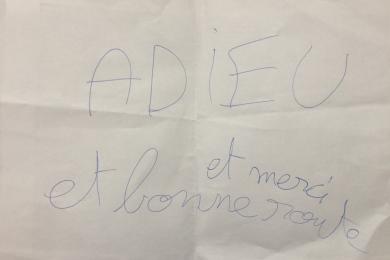 ADIEU
et merci
et bonne route